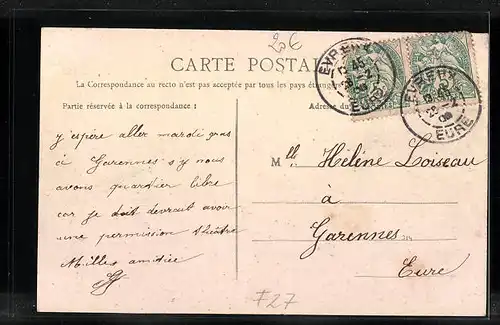 206
CARTE POSTALE
La Correspondance au recto n'est pas acceptée par tous les pays étrangers
Partie réservée à la correspondance :
Adresse du
EVREUX
EURE
EVREUX
EURE
j'espère aller mardi gras
à Garennes s'y nous
avons quartier libre
car je doit devrait avoir
une permission théâtre
Milles amitiée
Mlle Hélène Loiseau
à
Garennes
Eure
F27